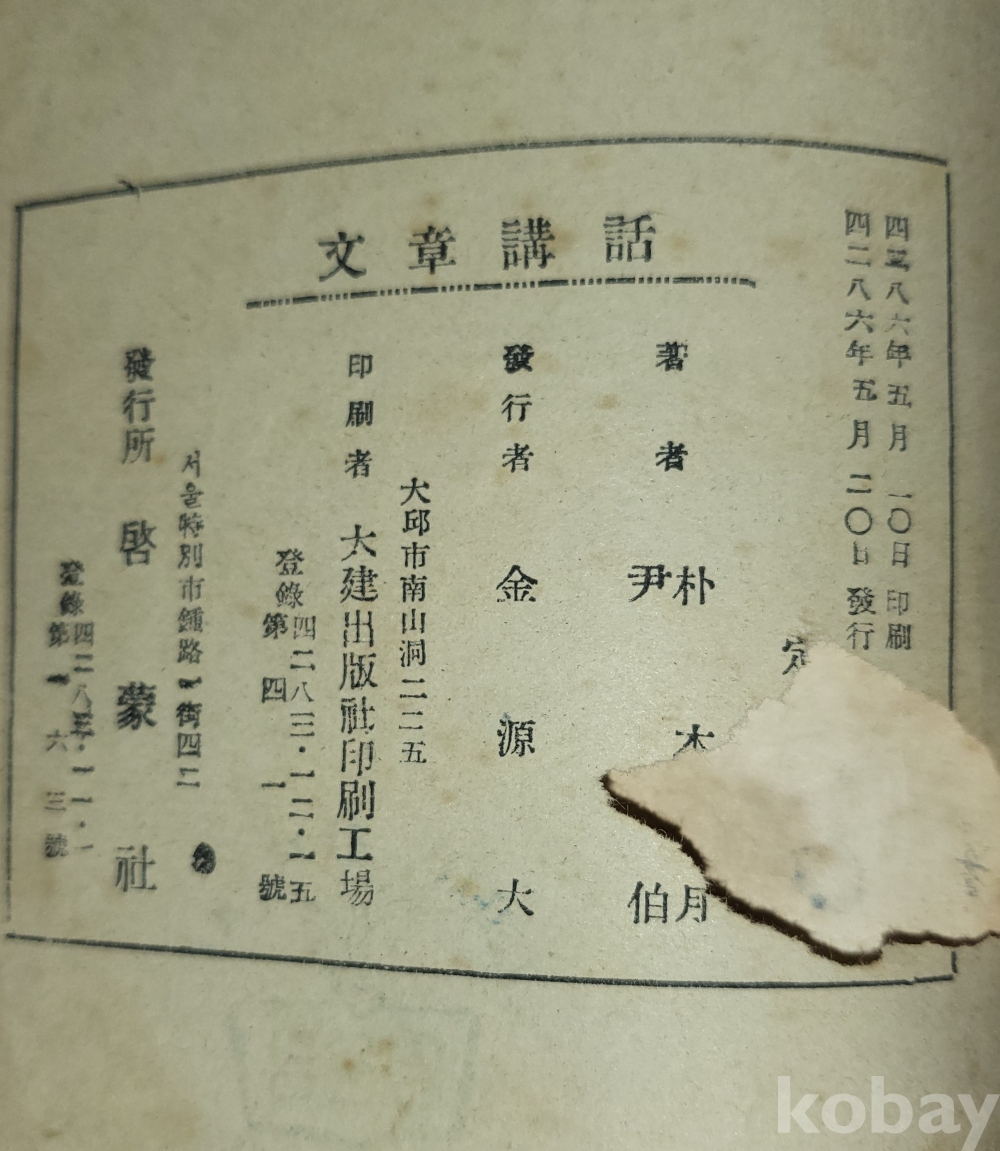 四二八六年五月一〇日印刷
四二八六年五月二〇日發行
文章講話
定
著者
朴木月
尹 伯
發行者 金源大
大邱市南山洞二二五
印刷者 大建出版社印刷工場
登錄四二八三·一二·一五
第四一號
서울特別市鍾路 街四二
發行所 啓蒙社
登錄四二八五·一一·一
第一六三號
kobay